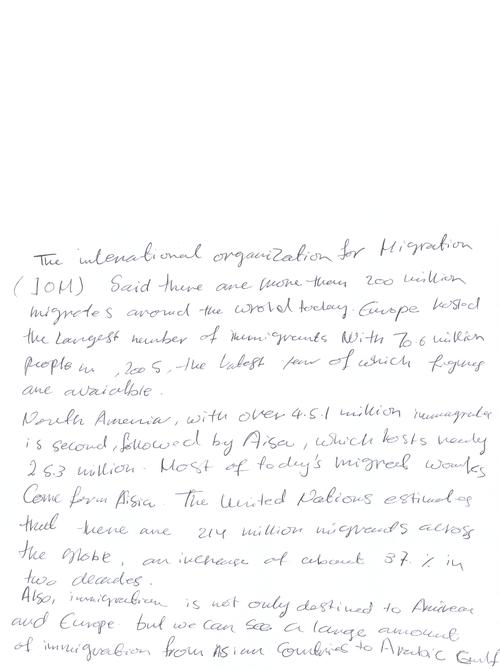 The intenational organization for Migration
(IOM) Said there are more than 200 million
migrates around the wrold today. Europe hosted
the Largest number of immigrants With 70.6 million
people in , 2005, the latest year of which figures
are avaialble.
North Ameria, with over 45.1 million immigrates
is second, followed by Aisa, which hosts nearly
25.3 million. Most of today's migred works
Come form Aisia. The United Nations estimates
that there are 214 million migrands across
the globe, an increase of about 37 % in
two decades.
Also, immigration is not only destined to American
and Europe but we can see a large amount
of immigration from Asian Countries to Arabic Gulf